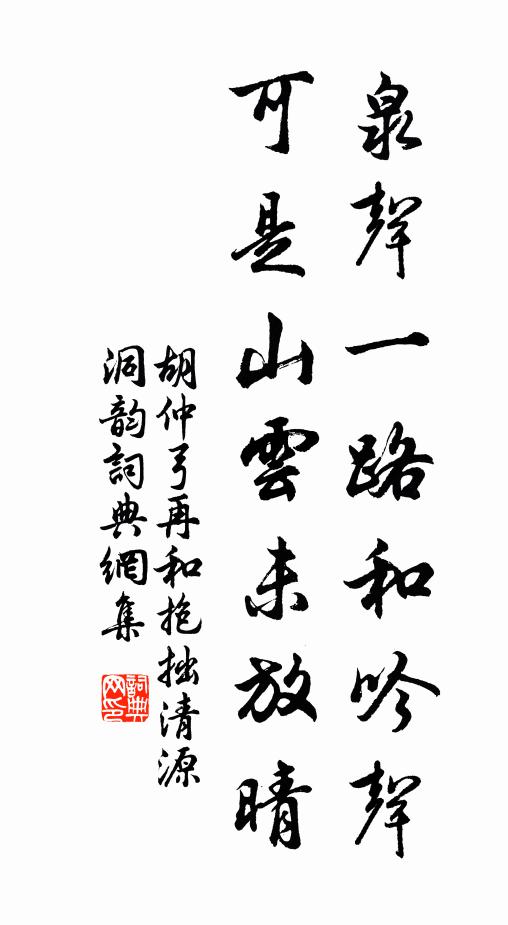 泉聲一路和吟聲
可是山雲未放晴
胡仲弓再和抱拙清源
洞韵詞典網集
詞典网印